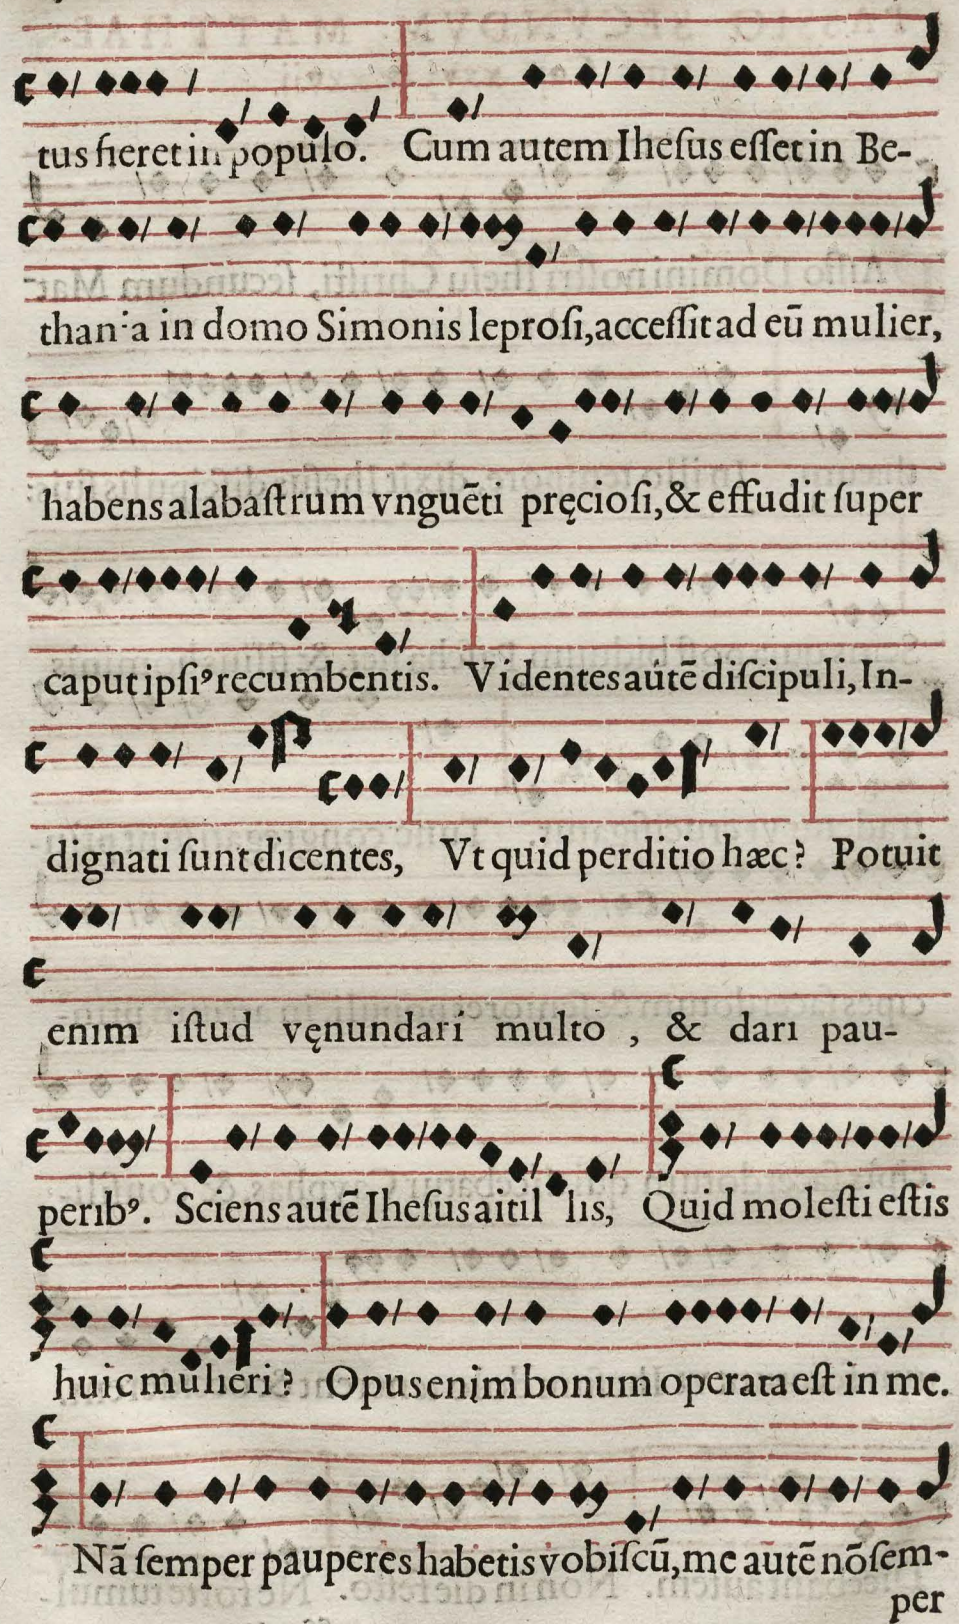 tus fieret in populo. Cum autem Iheſus eſſet in Be-
thania in domo Simonis leproſi, acceſſit ad eū mulier,
habens alabaſtrum vnguēti pręcioſi, & effudit ſuper
caput ipſiꝰ recumbentis. Videntes autē diſcipuli, In-
dignati ſunt dicentes, Vt quid perditio hæc? Potuit
enim iſtud vęnundari multo, & dari pau-
peribꝰ. Sciens autē Iheſus ait illis, Quid moleſti eſtis
huic mulieri? Opus enim bonum operata eſt in me.
Nā ſemper pauperes habetis vobiſcū, me autē nō ſem-
per